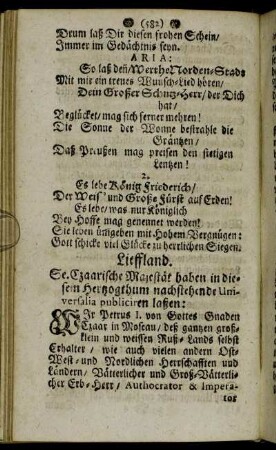 (582)
Drum laß Dir diesen frohen Schein/
Immer im Gedächtnis seyn.
ARIA:
So laß deñ/Werthe Norden-Stadt
Mit mir ein treues Wunsch-Lied hören/
Dein Großer Schutz-Herr/ der Dich
hat/
Beglücket/ mag sich ferner mehren!
Die Sonne der Wonne bestrahle die
Gräntzen/
Daß Preußen mag preisen den stetigen
Lentzen!
2.
Es lebe König Friederich/
Der Weis' und Große Fürst auf Erden!
Es lebe/ was nur Königlich
Bey Hoffe mag genennet werden!
Sie leben ümgeben mit Hohem Vergnügen:
Gott schicke viel Glücke zu herrlichen Siegen.
Lieffland.
Se. Czaarische Majestät haben in die-
sem Hertzogthum nachstehende Uni-
versalia publiciren laßen:
WIr Petrus I. von Gottes Gnaden
Czaar in Moscau/ deß gantzen groß-
klein und weissen Ruß-Lands selbst
Erhalter/ wie auch vielen andern Ost-
West- und Nordlichen Herrschafften und
Ländern/ Vätterlicher und Groß-Vätterli-
cher Erb-Herr/ Authocrator & Impera-
tor